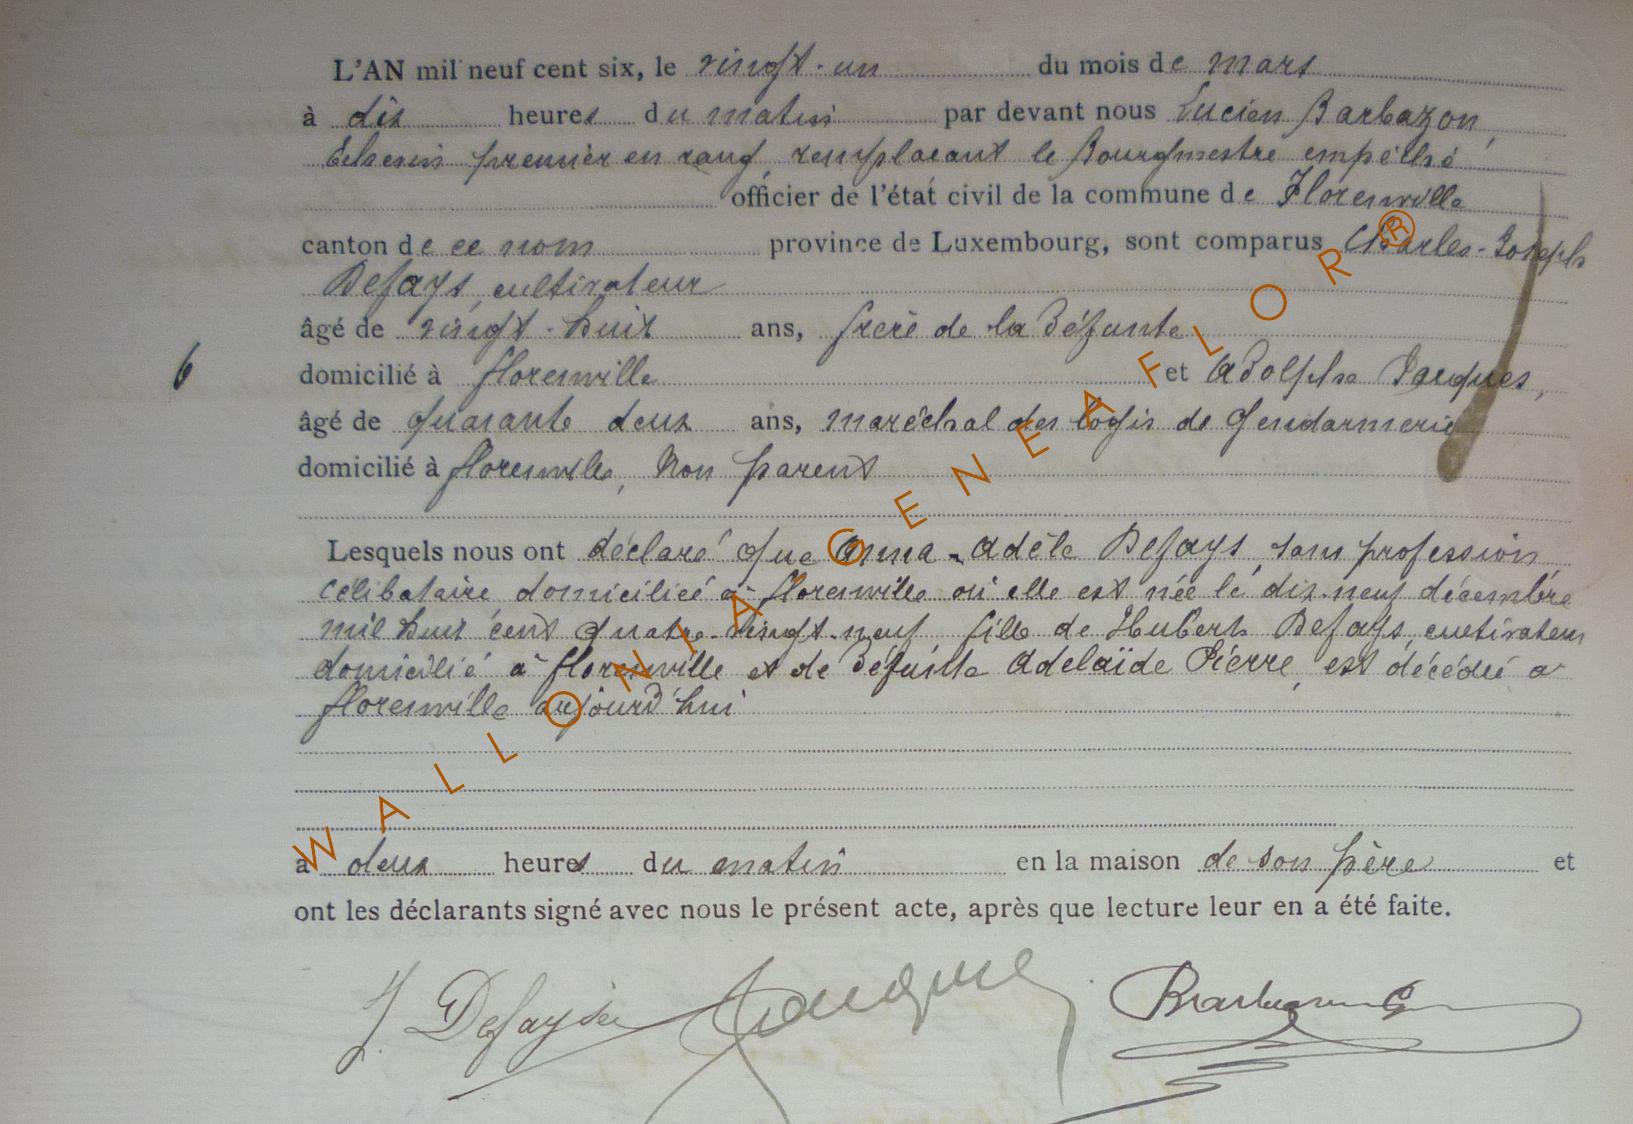 L'AN mil neuf cent six, le vingt-un du mois de mars
à dix heures du matin par devant nous Lucien Barbazon,
Echevin premier en rang, remplaçant le Bourgmestre empêché
officier de l'état civil de la commune de Florenville
canton de ce nom province de Luxembourg, sont comparus Charles-Joseph
Defays, cultivateur
âgé de vingt-huit ans, frère de la défunte
6 domicilié à Florenville et Adolphe Jacques,
âgé de quarante deux ans, maréchal des logis de gendarmerie
domicilié à Florenville, Non parent
Lesquels nous ont déclaré que Anna-Adèle Defays, sans profession
célibataire domiciliée à Florenville où elle est née le dix-neuf décembre
mil huit cent quatre-vingt-neuf fille de Hubert Defays, cultivateur
domicilié à Florenville et de défunte Adelaïde Pierre, est décédée à
Florenville aujourd'hui
à deux heures du matin en la maison de son père et
ont les déclarants signé avec nous le présent acte, après que lecture leur en a été faite.
J Defays Jacques Barbazon
WALLONIA GENEAFLOR®